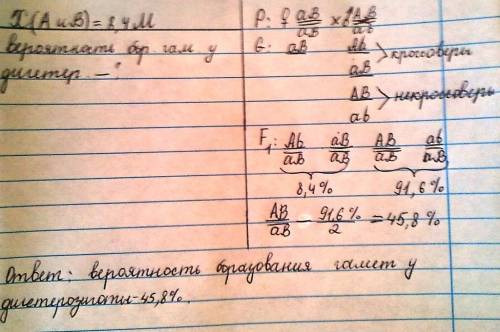 I (A и B) = 8,4 М
вероятность обр. гам. у
дигетер. — ?
P: ♀ aB/aB × ♂ AB/ab
G: aB Ab
aB > кроссоверы
AB
ab > некроссоверы
F₁: Ab/aB aB/aB AB/aB ab/aB
8,4% 91,6%
AB/aB - 91,6%/2 = 45,8%
Ответ: вероятность образования гамет у
дигетерозиготы - 45,8%.